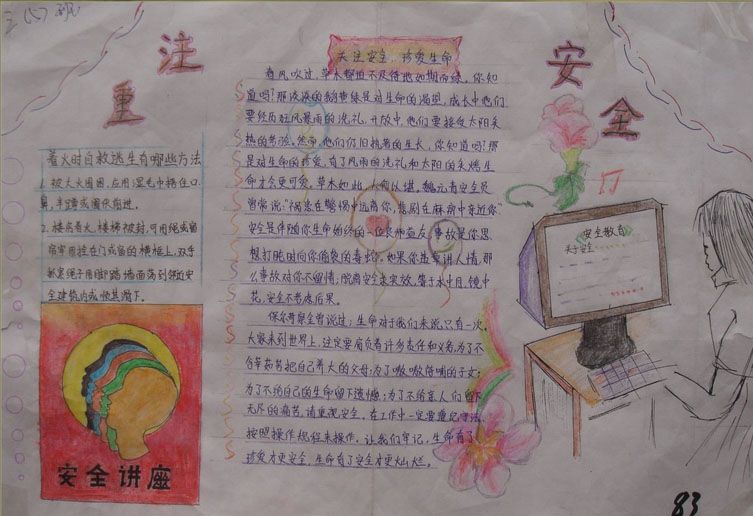 三(六)班
注重
安全
着火时自救逃生有哪些方法
1. 被大火围困,应用湿毛巾捂住口
鼻,半蹲或匍伏前进。
2. 楼房着火,楼梯被封,可用绳或窗
帘牢固拴在门或窗的横框上,双手
抓紧绳子用脚踏墙面荡到邻近安
全建筑内或顺其滑下。
安全讲座
关注安全,珍爱生命
春风吹过,草木都迫不及待地如期而绿。你知
道吗?那淡淡的鹅黄绿是对生命的渴望,成长中他们
要经历狂风暴雨的洗礼,开放中,他们要接受太阳炙
热的考验。然而,他们仍旧执着的生长,你知道吗?那
是对生命的珍爱,有了风雨的洗礼和太阳的炙烤生
命才会更可爱,草木如此,人何以堪,
常常说:"祸患在警惕中远离你,悲剧在麻痹中亲近你"
安全是伴随你生命始终的一位良师益友,事故是你思
想打盹时向你偷袭的毒蛇。如果你违章讲人情,那
么事故对你不留情;脱离安全求实效,等于水中月,镜中
花,安全不考虑后果。
保尔·柯察金曾说过:生命对于我们来说,只有一次。
大家来到世界上,注定要肩负着许多责任和义务,为了不
辜负把自己养大的父母;为了嗷嗷待哺的子女;
为了不给自己的生命留下遗憾;为了不给亲人们留下
无尽的痛苦,请重视安全,在工作中一定要遵纪守法、
按照操作规程来操作。让我们牢记,生命有了
珍爱才更安全,生命有了安全才更灿烂。
安全教育
关于安全
83